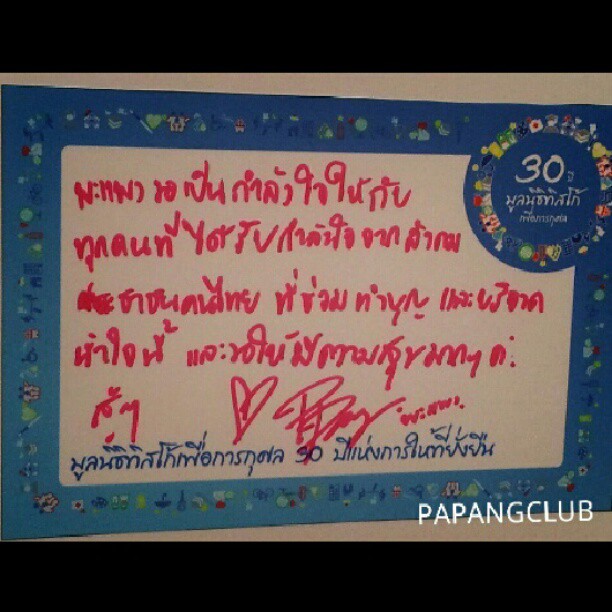 30 ปี
มูลนิธิทิสโก้
เพื่อการกุศล
ขอเป็นกำลังใจให้กับ
ทุกคนที่ได้รับกำลังใจจาก
ประชาชนคนไทย ที่ช่วยทำบุญ และบริจาค
น้ำใจนี้ และขอให้มีความสุขมากๆ ค่ะ
สู้ๆ
มูลนิธิทิสโก้เพื่อการกุศล 30 ปีแห่งการให้ที่ยั่งยืน
PAPANGCLUB